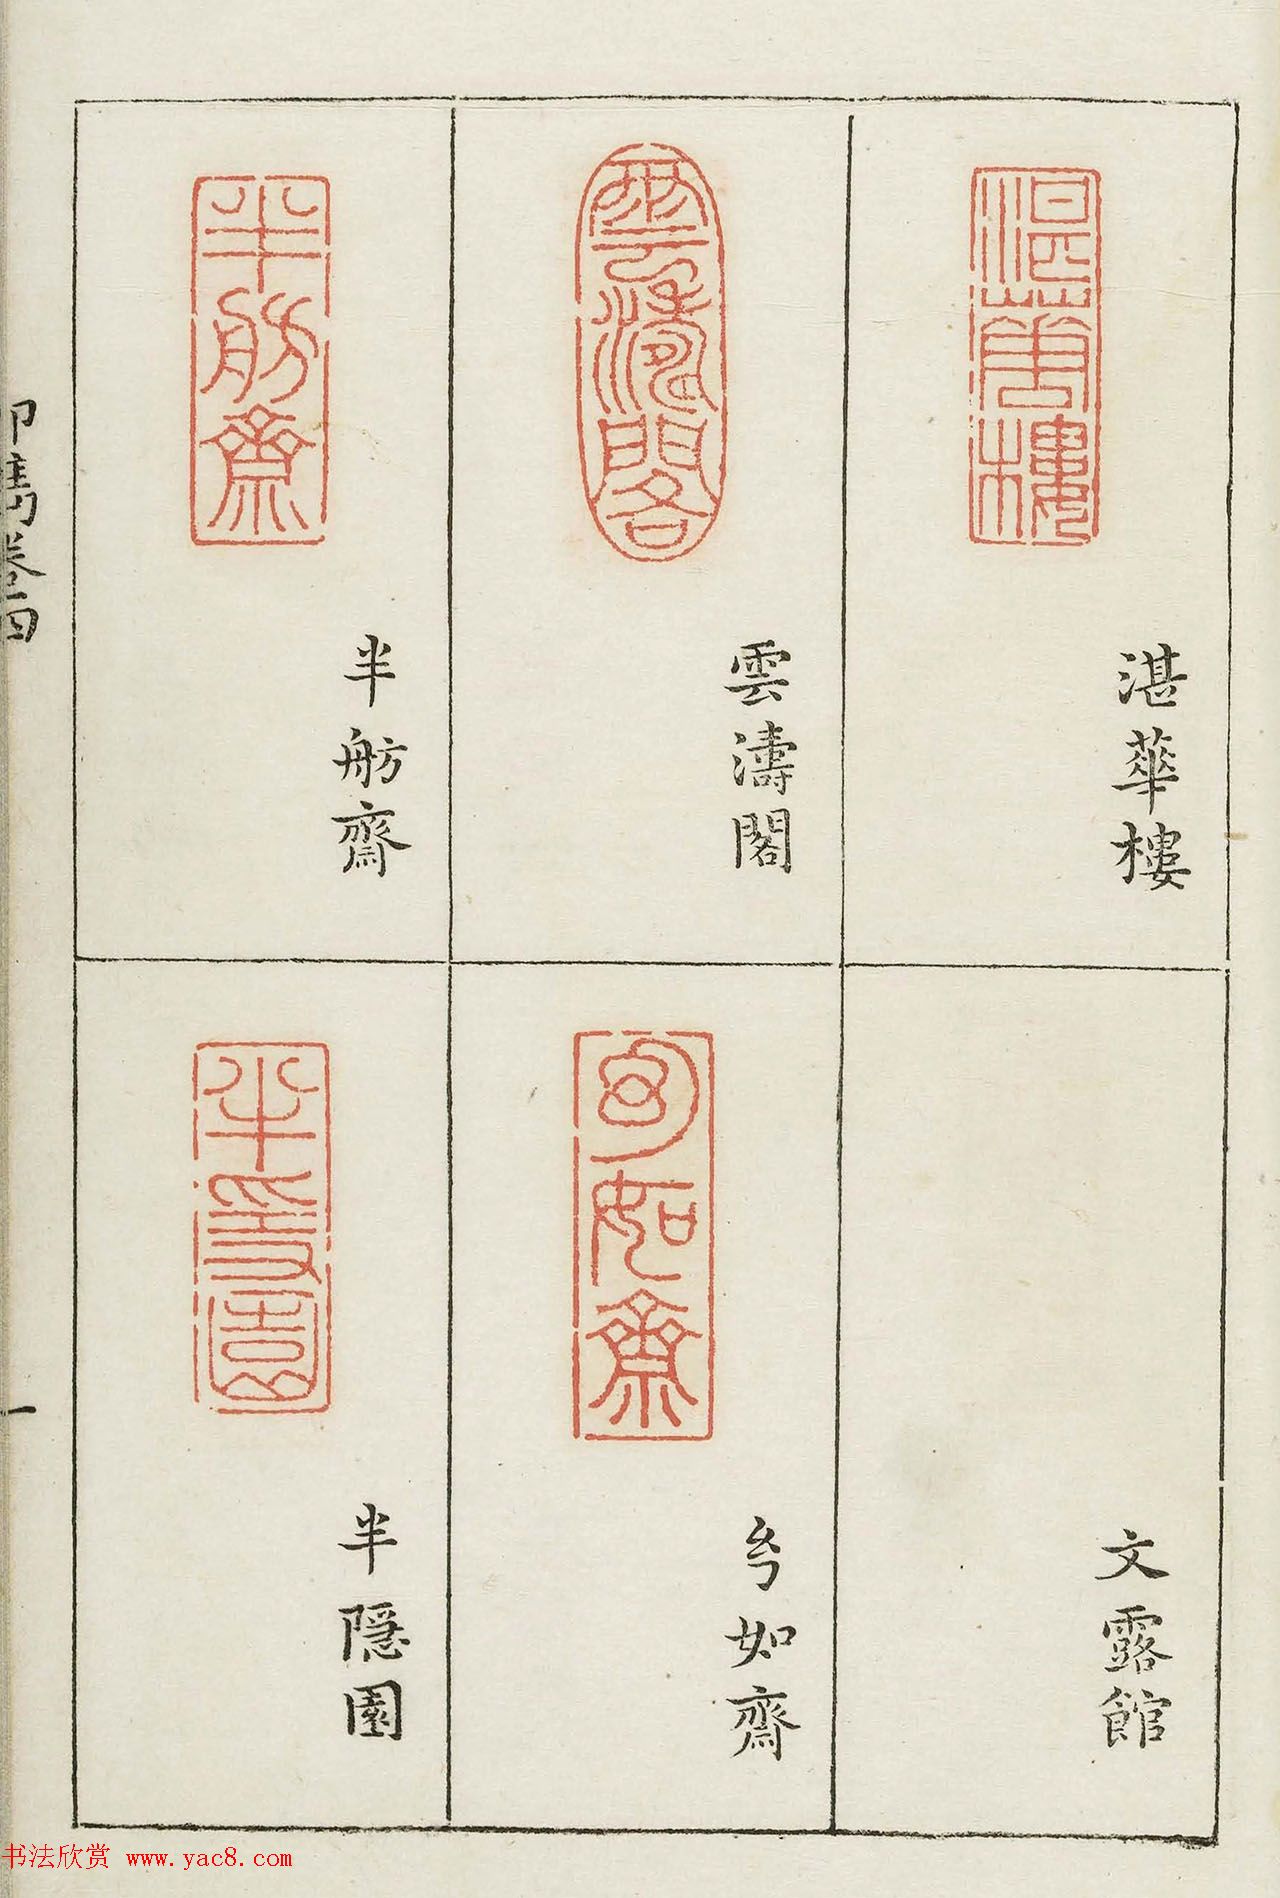 湛華樓
雲濤閣
半舫齋
文露館
兮如齋
半隱園
印雋卷四
一
书法欣赏 www.yac8.com